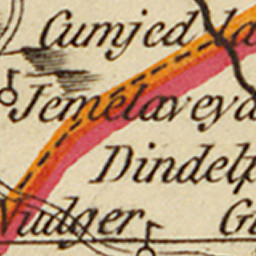 Cumjed la
Jemelaveyda
Dindelp
Nudger Gu